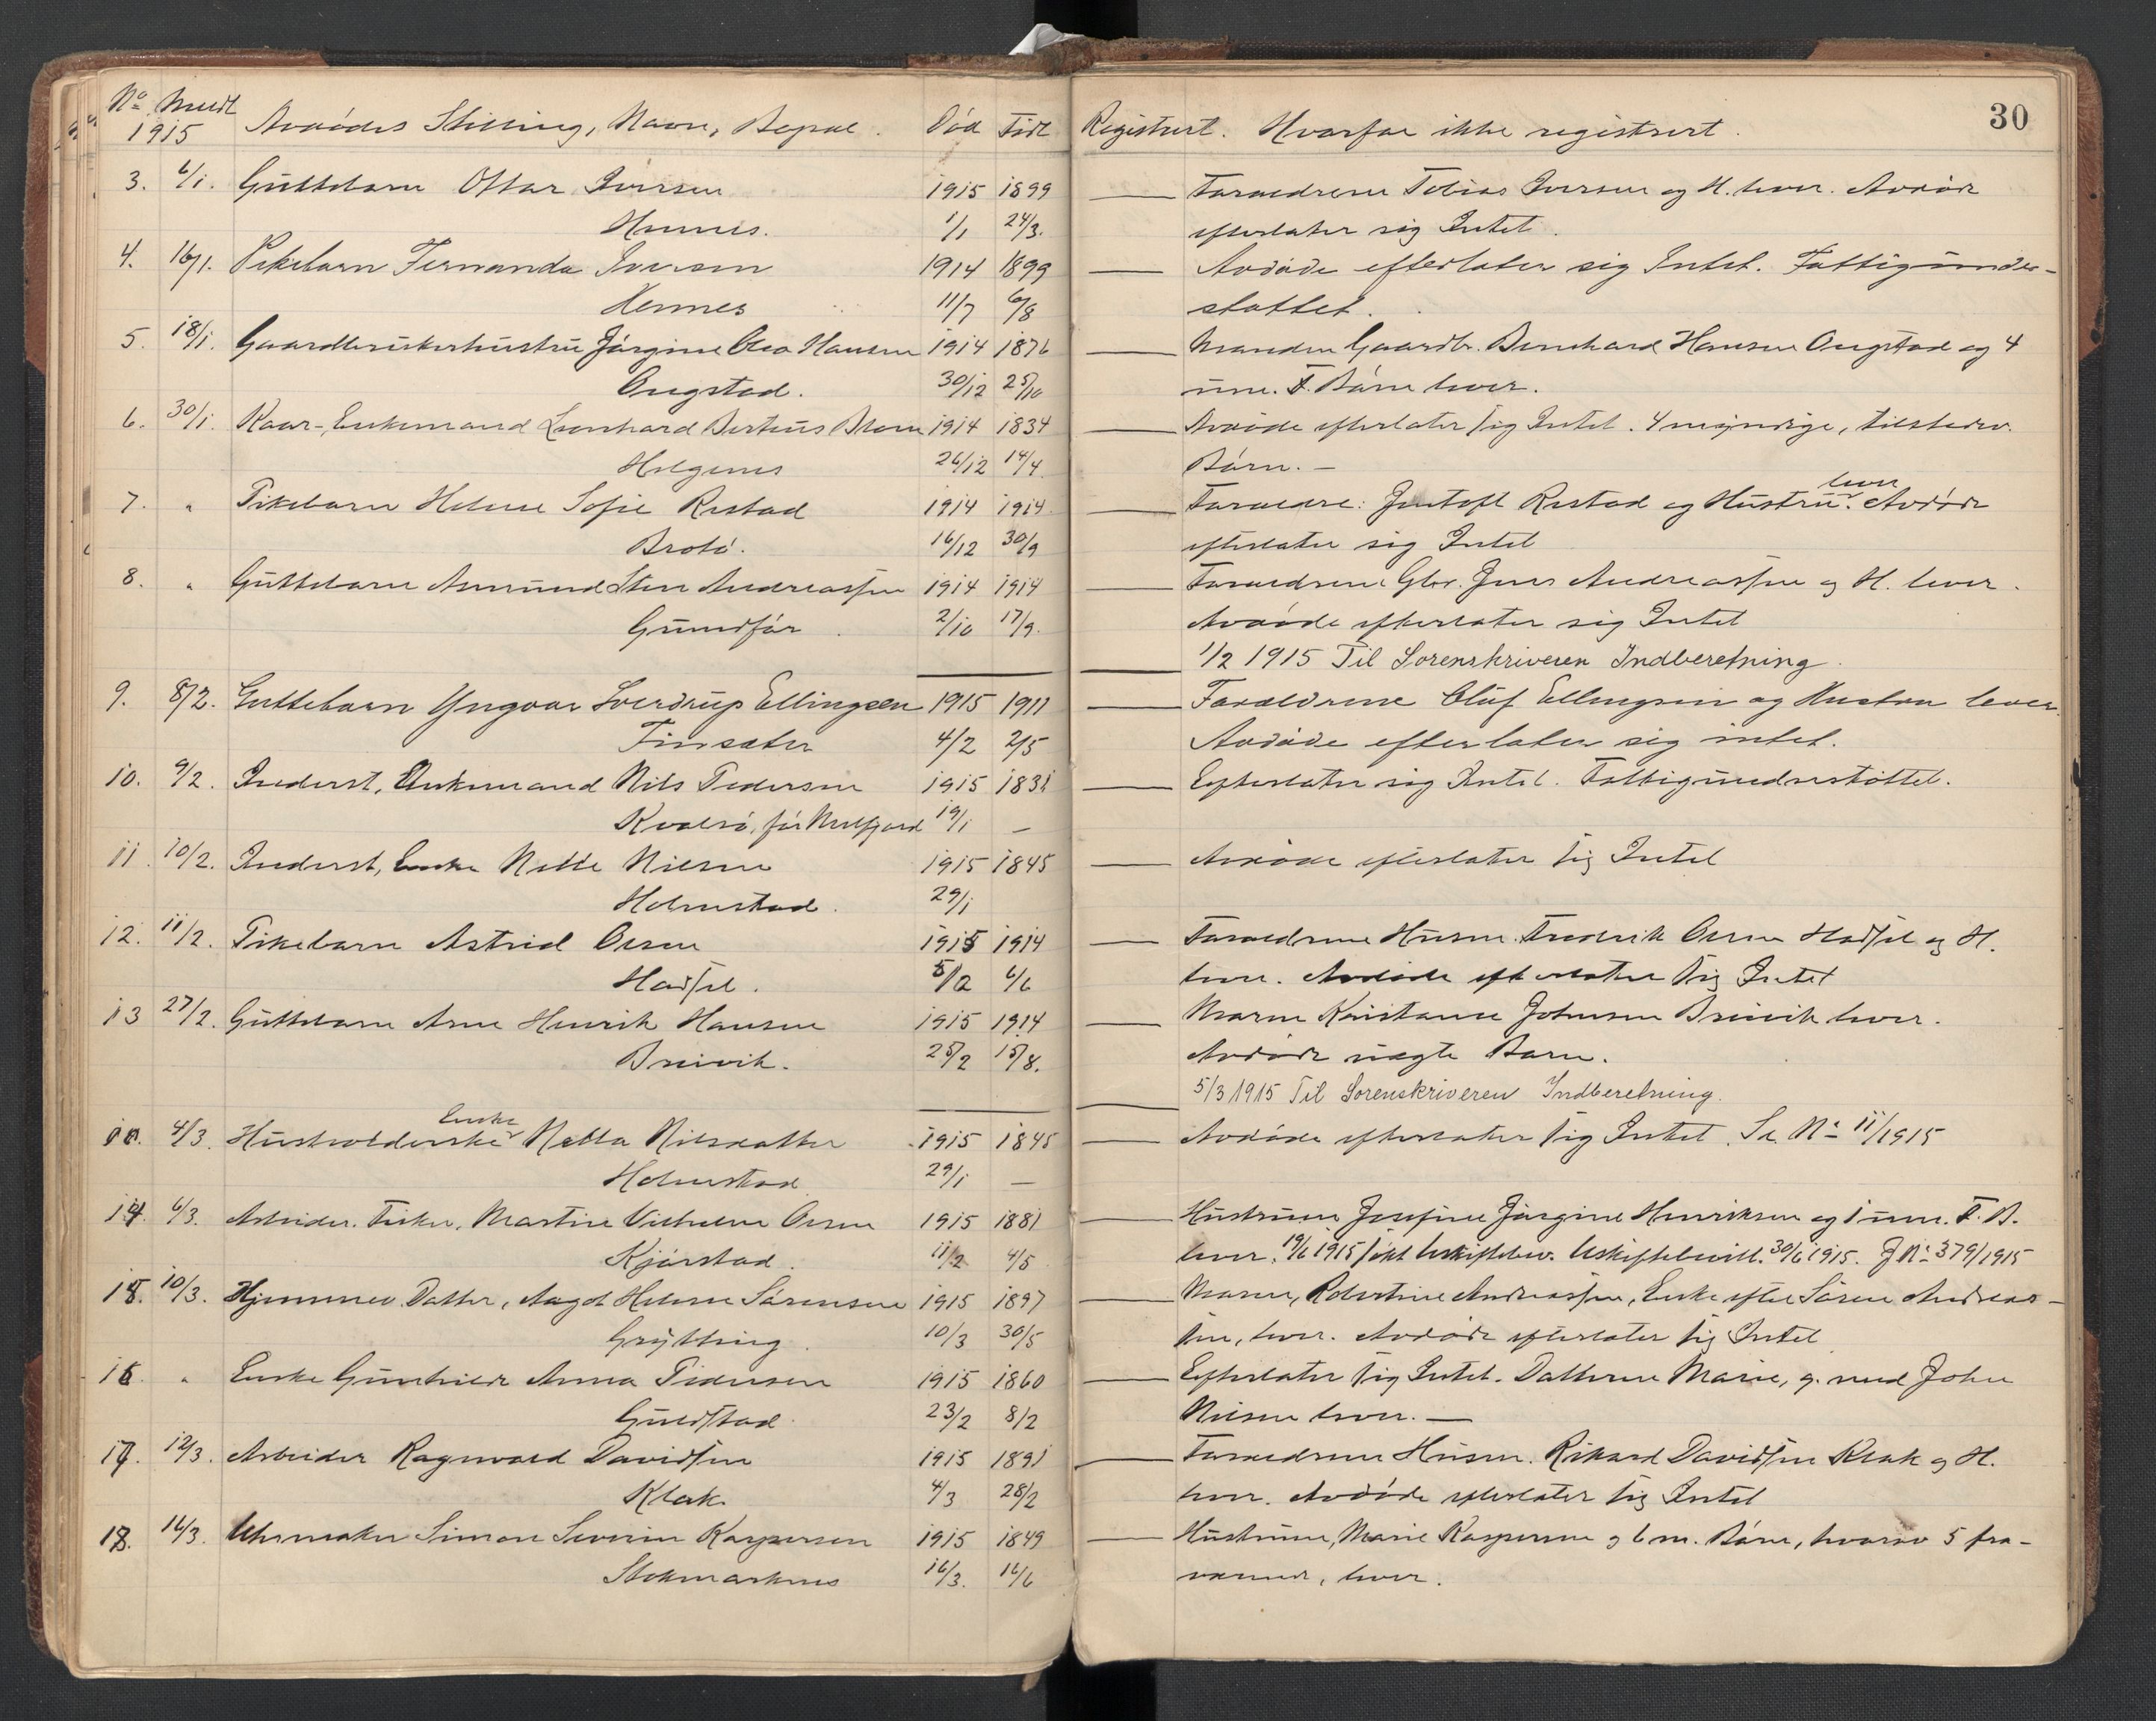 No Meldt
1915 Avdødes Stilling, Navn, Bopæl. Død Født Registrert. Hvorfor ikke registrert. 30
3. 6/1. Guttebarn Ottar Iversen 1915 1899 — Forældrene Tobias Iversen og H. lever. Avdøde
Hennes. 1/1 24/3. efterlater sig Intet.
4. 16/1. Pikebarn Fernanda Iversen 1914 1899 — Avdøde efterlater sig Intet. Fattigunder-
Hennes 11/7 6/8 støttet.
5. 18/1. Gaardbrukerhustru Jørgine Olea Hansen 1914 1876 — Manden Gaardbr. Bernhard Hansen Ongstad og 4
Ongstad. 30/12 25/10 um. F. Børn lever.
6. 30/1. Kaar-, Enkemand Leonhard Berteus Blom 1914 1834 — Avdøde efterlater sig Intet. 4 myndige, tilstedev.
Helgenes 26/12 14/4. Børn. —
7. " Pikebarn Helene Sofie Restad 1914 1914. — Forældre: Jentoft Restad og Hustru lever. Avdøde
Brotø. 16/12 30/9 efterlater sig Intet
8. " Guttebarn Asmund Sten Andreassen 1914 1914 — Forældrene Gbr. Jens Andreassen og H. lever.
Grundfør. 2/10 17/9. Avdøde efterlater sig Intet
— 1/2 1915 Til Sorenskriveren Indberetning.
9. 8/2. Guttebarn Yngvar Sverdrup Ellingsen 1915 1911 — Forældrene Oluf Ellingsen og Hustru lever.
Finsæter 4/2 2/5 Avdøde efterlater sig intet.
10. 9/2. Inderst, Enkemand Nils Pedersen 1915 1831 — Efterlater sig Intet. Fattigunderstøttet.
Kvalsø, før Melfjord 19/1 —
11. 10/2. Inderst, Enke Nette Nilsen 1915 1845 — Avdøde efterlater sig Intet
Holmstad. 29/1
12. 11/2. Pikebarn Astrid Olsen 1915 1914 — Forældrene Husm. Fredrik Olsen Hadsel og H.
Hadsel. 5/2 6/6 lever. Avdøde efterlater sig Intet
13 27/2. Guttebarn Arne Henrik Hansen 1915 1914 — Moren Kristanse Johnsen Breivik lever.
Breivik. 25/2 15/8. Avdøde uægte Barn.
— 5/3 1915 Til Sorenskriveren Indberetning.
4/3. Husholderske Enke Netta Nilsdatter 1915 1845 — Avdøde efterlater sig Intet. Se No 11/1915
Holmstad 29/1 —
14. 6/3. Arbeider. Fisker, Martin Vilhelm Olsen 1915 1881 — Hustruen Josefine Jørgine Henriksen og 1 um. F. B.
Kjørstad. 11/2 4/5 lever. 19/6 1915 søkt Uskiftebev. Uskiftebevill. 30/6 1915. J No 379/1915
15. 10/3. Hjemmev. Datter, Aagot Helene Sørensen 1915 1897 — Moren, Robertine Andreassen, Enke efter Søren Andreas-
Grytting. 10/3 30/5 sen, lever. Avdøde efterlater sig Intet
16. " Enke Gunhilde Anna Pedersen 1915 1860 — Efterlater sig Intet. Datteren Marie, g. med John
Guldstad. 23/2 8/2 Nilsen lever. —
17. 12/3. Arbeider Ragnvald Davidsen 1915 1891 — Forældrene Husm. Rikard Davidsen Klak og H.
Klak. 4/3 28/2 lever. Avdøde efterlater sig Intet
18. 16/3. Uhrmaker Simon Severin Kaspersen 1915 1849 — Hustruen, Marie Kaspersen og 6 m. Børn, hvorav 5 fra-
Stokmarknes 16/3. 16/6 værende, lever.